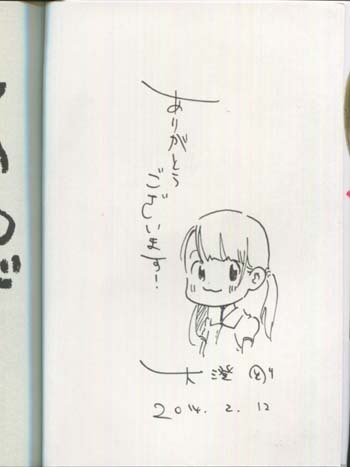 ありがとう
ございます!
大澄
2014. 2. 12